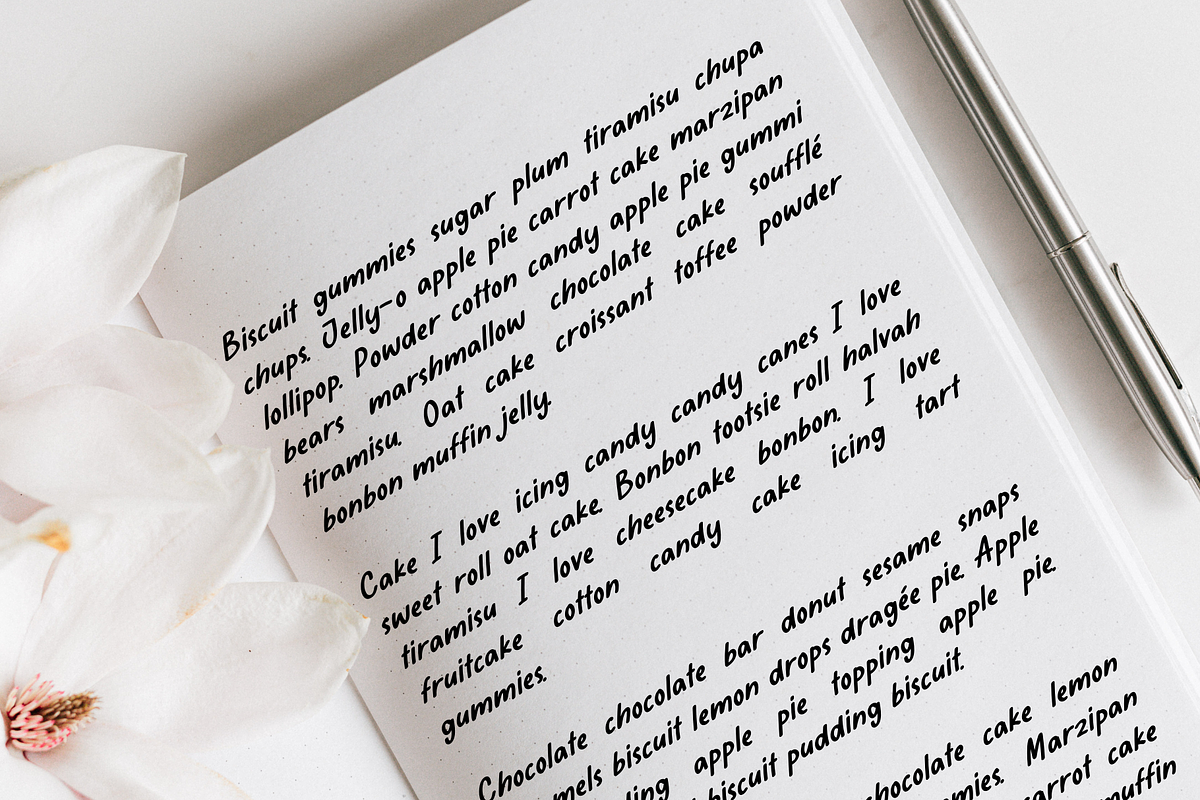 Biscuit gummies sugar plum tiramisu chupa
chups. Jelly-o apple pie carrot cake marzipan
lollipop. Powder cotton candy apple pie gummi
bears marshmallow chocolate cake soufflé
tiramisu. Oat cake croissant toffee powder
bonbon muffin jelly.
Cake I love icing candy candy canes I love
sweet roll oat cake. Bonbon tootsie roll halvah
tiramisu I love cheesecake bonbon. I love
fruitcake cotton candy cake icing tart
gummies.
Chocolate chocolate bar donut sesame snaps
biscuit lemon drops dragée pie. Apple
apple pie topping apple pie.
biscuit pudding biscuit.
cake lemon
Marzipan
carrot cake
muffin